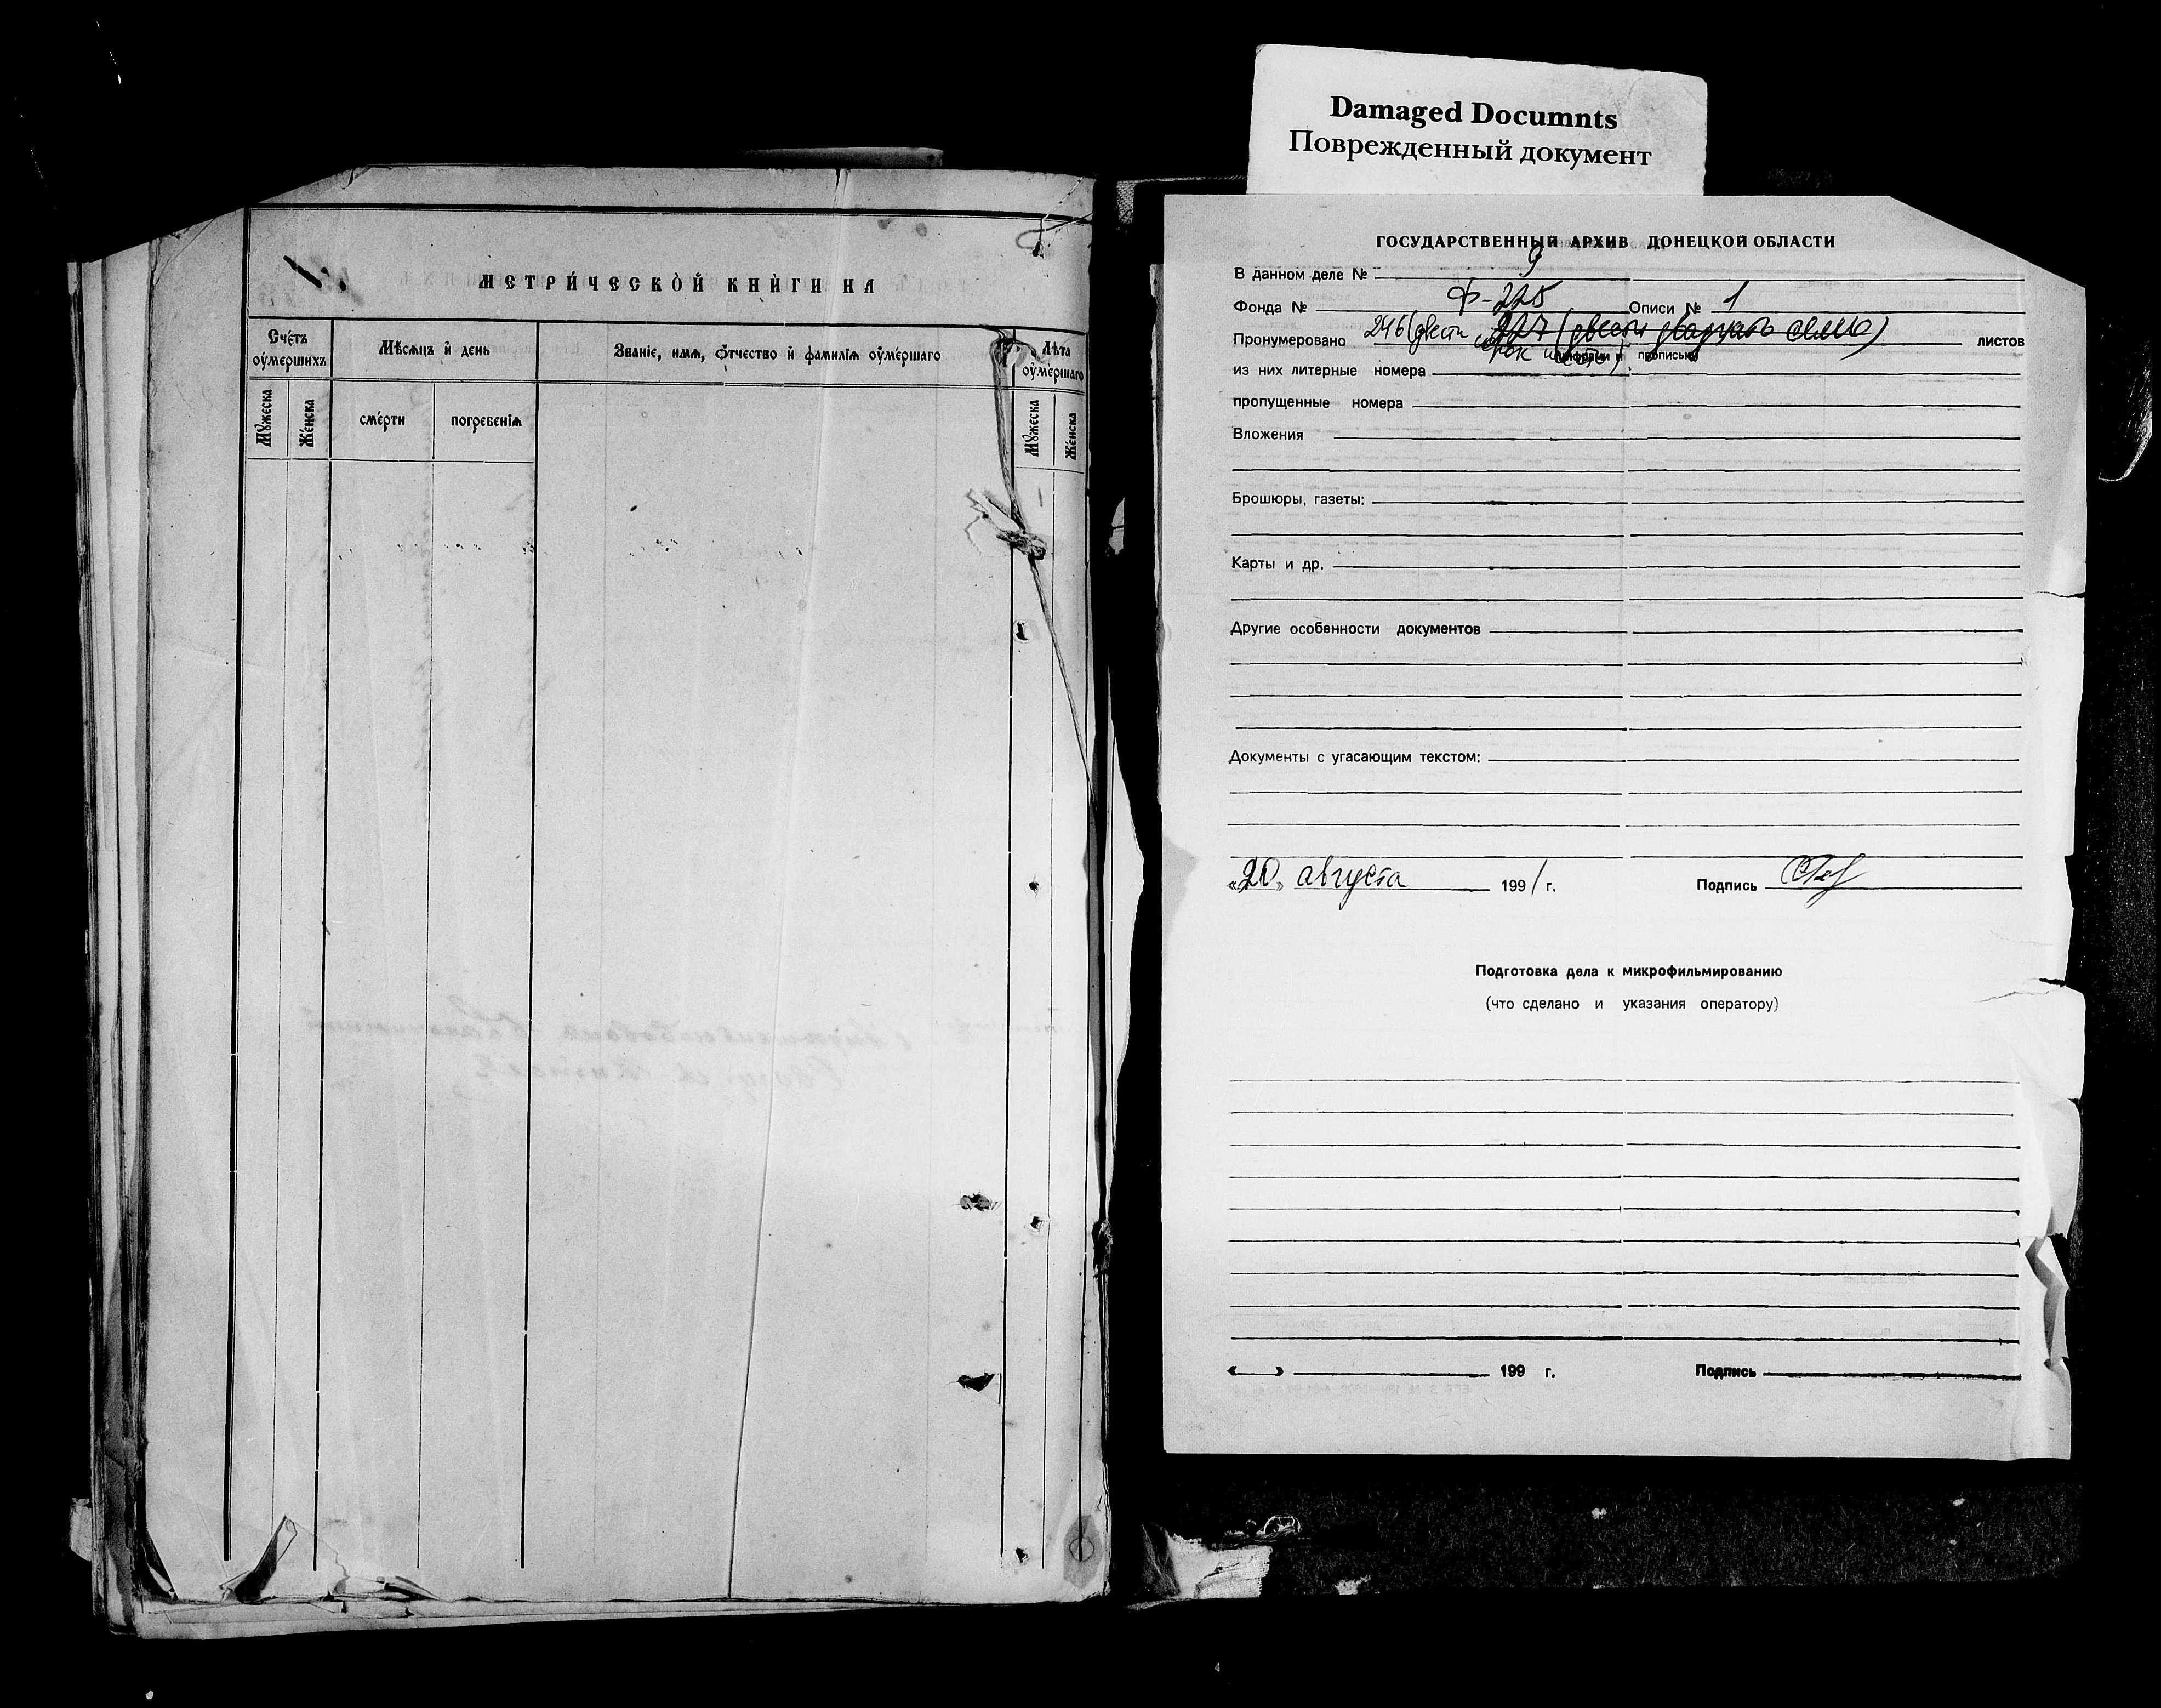 Damaged Documnts
Поврежденный документ
МЕТРИ́ЧЕСКО̀Й КНЍГИ НА
Счéтъ ᲂу҆мéршихъ
Мѣ́сѧцъ и҆ день
Званіе, имѧ, ѻ҆́тчество и҆ фамиліѧ ᲂу҆мéршаго
Лѣта ᲂу҆мéршаго
Мꙋжеска
Жéнска
смéрти
погребéніѧ
Мꙋжеска
Жéнска
ГОСУДАРСТВЕННЫЙ АРХИВ ДОНЕЦКОЙ ОБЛАСТИ
В данном деле № 9
Фонда № Ф-225 Описи № 1
Пронумеровано 246 (двести сорок шесть) 227 (двести двадцать семь) листов
цифрами и прописью
из них литерные номера
пропущенные номера
Вложения
Брошюры, газеты:
Карты и др.
Другие особенности документов
Документы с угасающим текстом:
«20» августа 1991 г. Подпись
Подготовка дела к микрофильмированию
(что сделано и указания оператору)
« » 199 г. Подпись